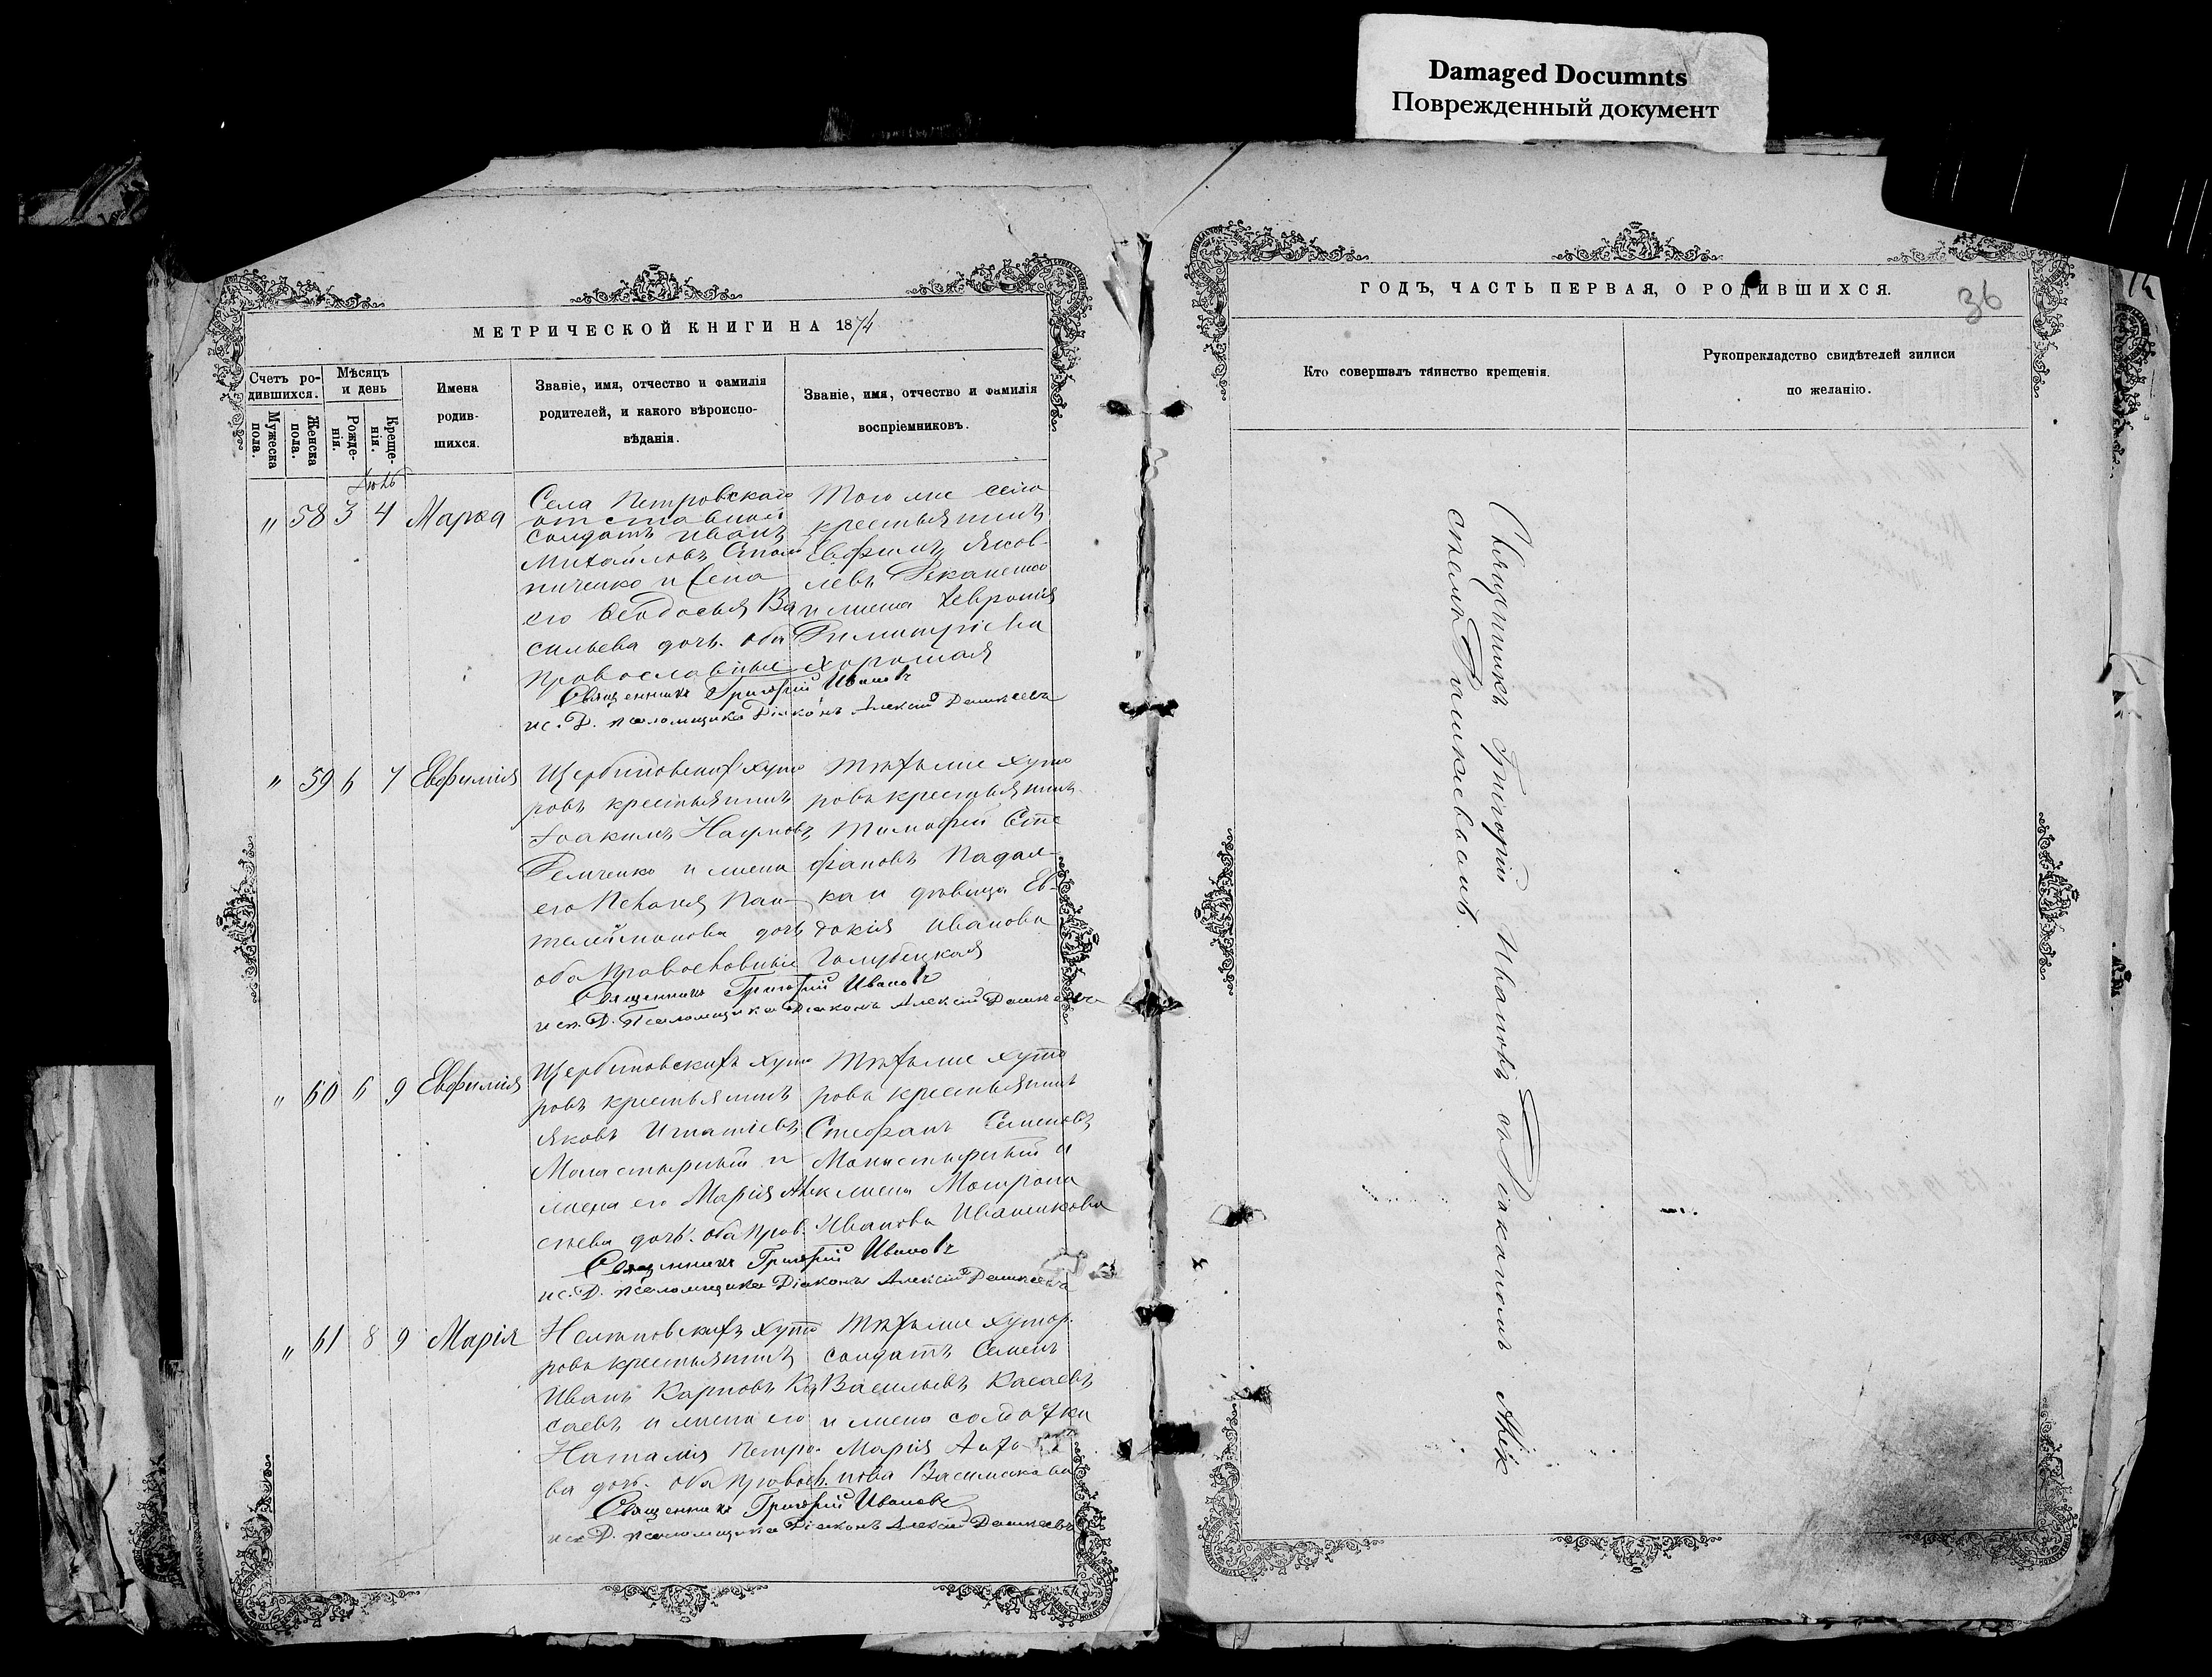 Damaged Documnts
Поврежденный документ
МЕТРИЧЕСКОЙ КНИГИ НА 1874
Счетъ ро-
дившихся.
Мужеска
пола.
Женска
пола.
Мѣсяцъ
и день
Рожде-
нія.
Креще-
нія.
Имена
родив-
шихся.
Званіе, имя, отчество и фамилія
родителей, и какого вѣроиспо-
вѣданія.
Званіе, имя, отчество и фамилія
воспріемниковъ.
" 58 3 4 Марѳа
Села Петровскаго
отставной
солдатъ Иванъ
Михайловъ
и жена
его Ѳеодосья Ва
сильева дочь. оба
православные
Того же села
крестьянинъ
Евфимъ Яков-
левъ
и жена Хевронія
Димитріева
Хорошая
Священникъ Григорій Ивановъ
ис. Д. псаломщика Діаконъ Алексій Дашкеевъ
" 59 6 7 Евфимія
Щербиновскихъ хуто
ровъ крестьянинъ
Іоакимъ Наумовъ
Демченко и жена
его Пелагія Пан-
телеймонова дочь
оба православные
Тѣхъ же хуто
ровъ крестьянинъ
Тимофей Сте
фановъ Падал-
ка и дѣвица Ев-
докія Иванова
Голубецкая
Священникъ Григорій Ивановъ
исп. Д. Псаломщика Діаконъ Алексій Дашкеевъ
" 60 6 9 Евфимія
Щербиновскихъ хуто
ровъ крестьянинъ
Яковъ Игнатіевъ
Монастырный и
жена его Марія Але
ксѣева дочь. оба прав.
Тѣхъ же хуто
ровъ крестьянинъ
Стефанъ Семеновъ
Монастырный и
жена Матрона
Иванова Ивашикова
Священникъ Григорій Ивановъ
ис. Д. псаломщика Діаконъ Алексій Дашкеевъ
" 61 8 9 Марія
хуто
ровъ крестьянинъ
Иванъ Карповъ Ка
саевъ и жена его
Наталія Петро-
ва дочь. оба правосл.
Тѣхъ же хутор.
солдатъ Семенъ
Васильевъ Касаевъ
и жена солдатка
Марія
Священникъ Григорій Ивановъ
исп Д. псаломщика Діаконъ Алексій Дашкеевъ
ГОДЪ, ЧАСТЬ ПЕРВАЯ, О РОДИВШИХСЯ.
36
Кто совершалъ таинство крещенія.
Рукоприкладство свидѣтелей записи
по желанію.
Священникъ Григорій Ивановъ съ Діакономъ Алек
сѣемъ Дашкеевымъ.